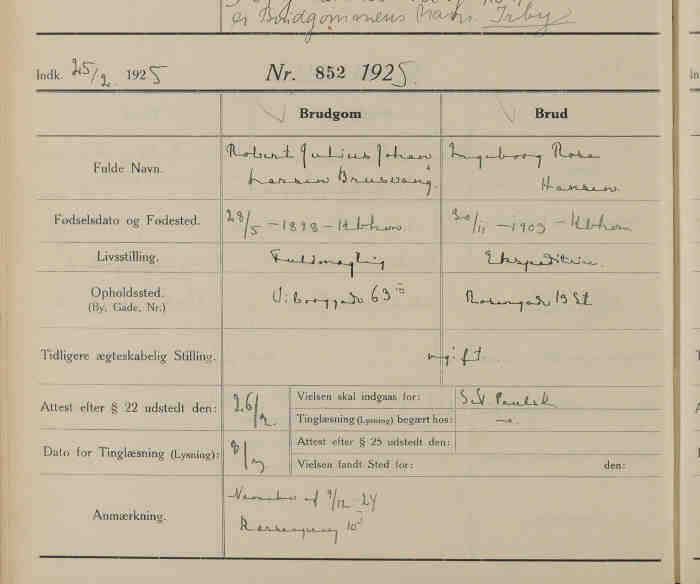 er Brudgommens Navn Irby
Indk. 25/2 1925 Nr. 852 1925.
Brudgom Brud
Fulde Navn. Robert Julius Johan Ingeborg Rosa
Larsen Brusvang. Hansen
Fødselsdato og Fødested. 28/5 - 1898 - Kbhvn 30/11 - 1903 - Kbhvn
Livsstilling. Fuldmægtig Ekspeditrice.
Opholdssted. Viborggade 63 Rosengade 13 St
(By, Gade, Nr.)
Tidligere ægteskabelig Stilling. ugift
Attest efter § 22 udstedt den: 26/2. Vielsen skal indgaas for: Sct Pauls K
Tinglæsning (Lysning) begært hos: —"—
Dato for Tinglæsning (Lysning): 8/3 Attest efter § 25 udstedt den:
Vielsen fandt Sted for: den:
Navnebev af 9/12 24
Anmærkning.